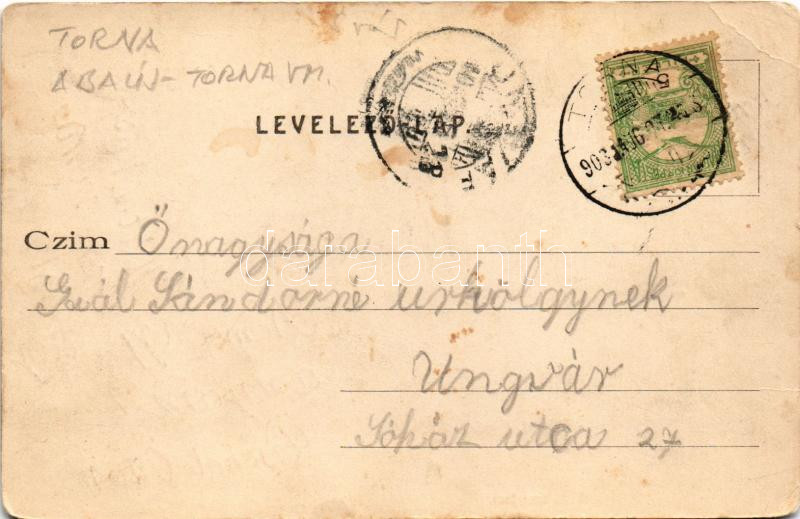 TORNA
ABAÚJ-TORNA VM.
LEVELEZŐ-LAP.
TORNA
Czim Önagysága
Gál Sándorné urhölgynek
Ungvár
Sóház utca 27
darabanth